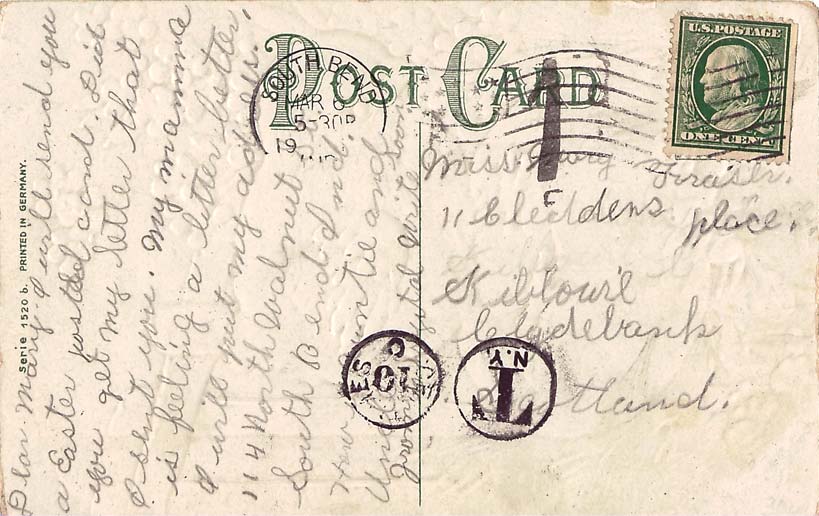 POST CARD
U.S. POSTAGE
ONE CENT
SOUTH BEND
MAR 6
5-30P
19
Serie 1520 b. PRINTED IN GERMANY.
Dear Mary I will send you
a Easter postal card. Did
you get my letter that
I sent you. My mamma
is feeling a litter better.
I will put my adress.
114 North Walnut
South Bend Ind.
How auntie and
Write Soon
from
Miss Mary Fraser.
11 Cleddens place.
Kilbowie
Clydebank
Scotland.
10
N.Y.
T